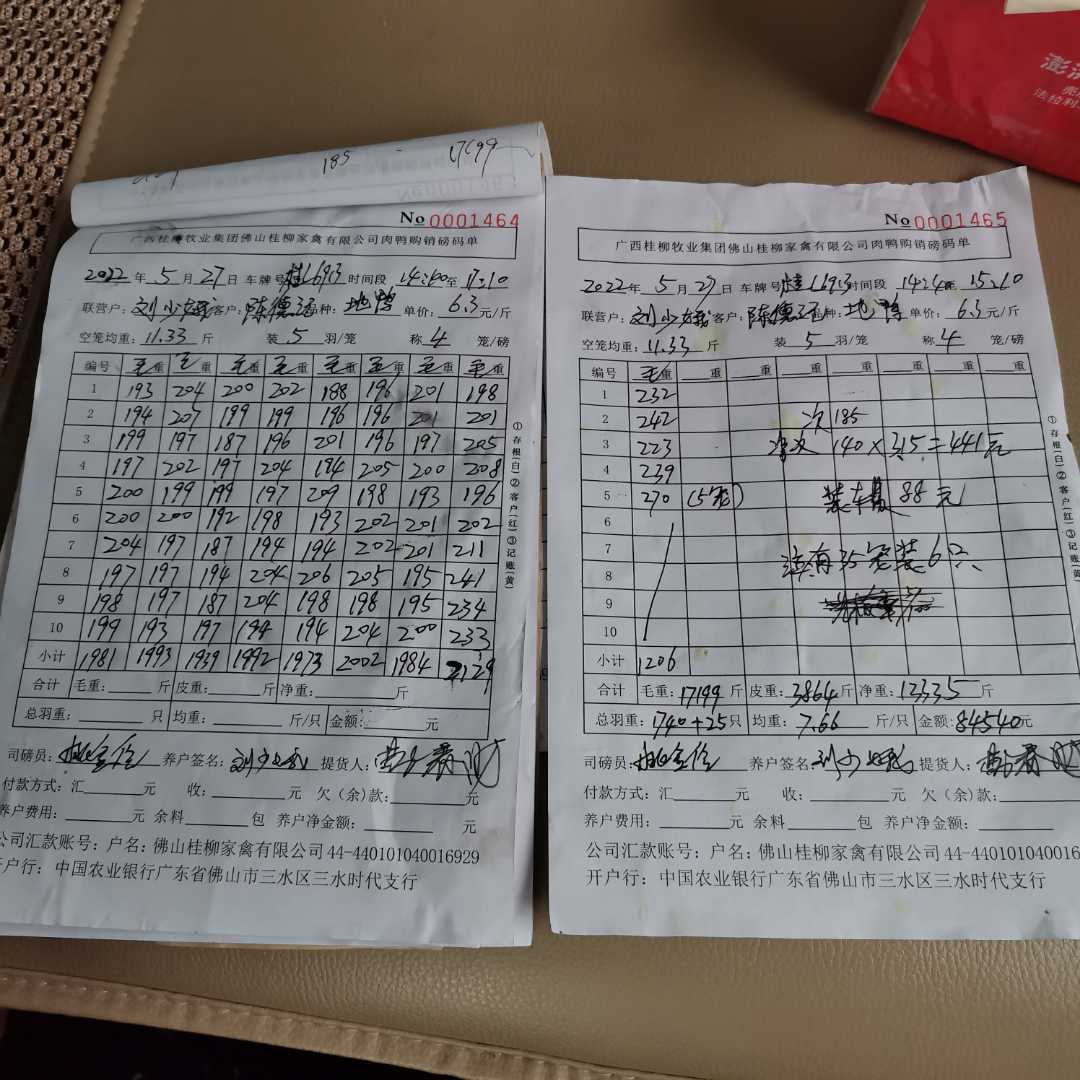 185 - 17199
No 0001464
广西桂柳牧业集团佛山桂柳家禽有限公司肉鸭购销磅码单
2022 年 5 月 27 日 车牌号 桂L6933 时间段 14:40 至 17:10
联营户: 刘少娥 客户: 陈德 品种: 地鸭 单价: 6.3 元/斤
空笼均重: 11.33 斤 装 5 羽/笼 称 4 笼/磅
编号 毛重 毛重 毛重 毛重 毛重 毛重 毛重 毛重
1 193 204 200 202 188 196 201 198
2 194 207 199 199 196 196 201 201
3 199 197 187 196 201 196 197 205
4 197 202 197 204 184 205 200 208
5 200 199 199 197 209 198 193 196
6 200 200 192 198 193 202 201 202
7 204 197 187 194 194 202 201 211
8 197 197 194 204 206 205 195 241
9 198 197 187 204 198 198 195 234
10 199 193 197 194 194 204 200 233
小计 1981 1993 1939 1992 1973 2002 1984 2129
合计 毛重: 斤 皮重: 斤 净重: 斤
总羽重: 只 均重: 斤/只 金额: 元
司磅员: 养户签名: 刘少娥 提货人:
付款方式: 汇 元 收: 元 欠(余)款: 元
养户费用: 元 余料 包 养户净金额: 元
公司汇款账号: 户名: 佛山桂柳家禽有限公司 44-440101040016929
开户行: 中国农业银行广东省佛山市三水区三水时代支行
①存根(白)②客户(红)③记账(黄)
No 0001465
广西桂柳牧业集团佛山桂柳家禽有限公司肉鸭购销磅码单
2022 年 5 月 27 日 车牌号 桂L6933 时间段 14:40 15:10
联营户: 刘少娥 客户: 陈德 品种: 地鸭 单价: 6.3 元/斤
空笼均重: 11.33 斤 装 5 羽/笼 称 4 笼/磅
编号 毛重 重 重 重 重 重 重 重
1 232
2 242 次 185
3 223 净 140×3.15=441元
4 239
5 270 (5笼) 装车 88元
6
7 还有35笼装6只
8
9
10
小计 1206
合计 毛重: 17199 斤 皮重: 3864 斤 净重: 13335 斤
总羽重: 1740+25 只 均重: 7.66 斤/只 金额: 84540 元
司磅员: 养户签名: 刘少娥 提货人:
付款方式: 汇 元 收: 元 欠(余)款:
养户费用: 元 余料 包 养户净金额: 元
公司汇款账号: 户名: 佛山桂柳家禽有限公司 44-440101040016
开户行: 中国农业银行广东省佛山市三水区三水时代支行
①存根(白)②客户(红)③记账(黄)
法拉利